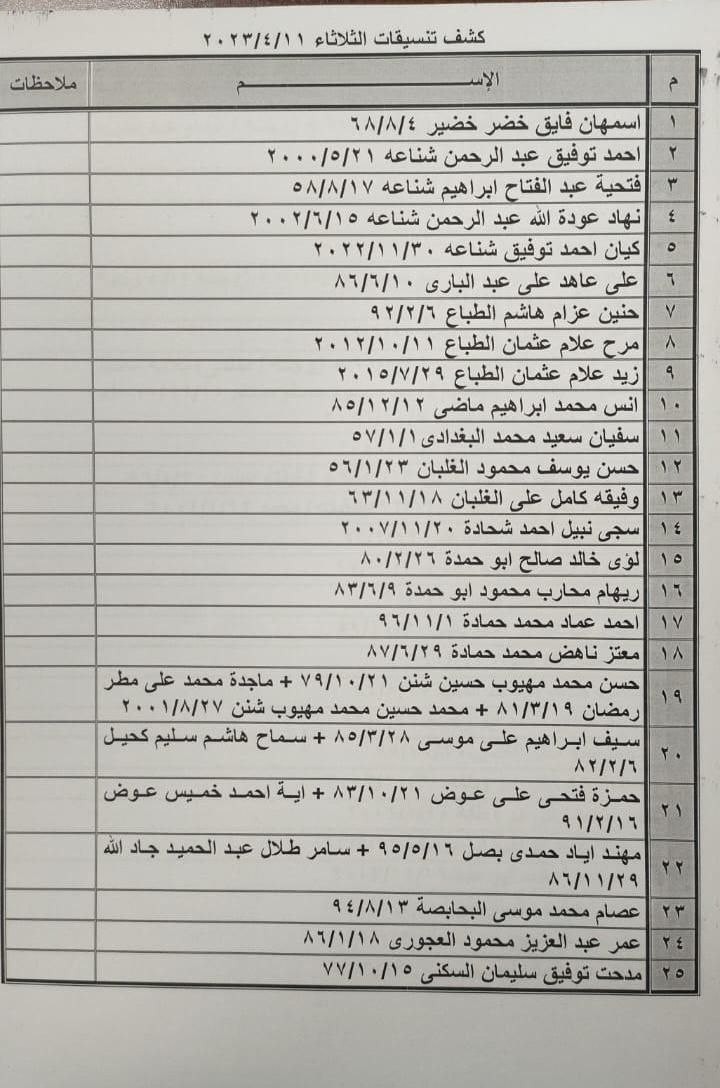 كشف تنسيقات الثلاثاء ٢٠٢٣/٤/١١
م الإســــــــــــــم ملاحظات
١ اسمهان فايق خضر خضير ٦٨/٨/٤
٢ احمد توفيق عبد الرحمن شناعه ٢٠٠٠/٥/٢١
٣ فتحية عبد الفتاح ابراهيم شناعه ٥٨/٨/١٧
٤ نهاد عودة الله عبد الرحمن شناعه ٢٠٠٢/٦/١٥
٥ كيان احمد توفيق شناعه ٢٠٢٢/١١/٣٠
٦ على عاهد على عبد البارى ٨٦/٦/١٠
٧ حنين عزام هاشم الطباع ٩٢/٢/٦
٨ مرح علام عثمان الطباع ٢٠١٢/١٠/١١
٩ زيد علام عثمان الطباع ٢٠١٥/٧/٢٩
١٠ انس محمد ابراهيم ماضى ٨٥/١٢/١٢
١١ سفيان سعيد محمد البغدادى ٥٧/١/١
١٢ حسن يوسف محمود الغلبان ٥٦/١/٢٣
١٣ وفيقه كامل على الغلبان ٦٣/١١/١٨
١٤ سجى نبيل احمد شحادة ٢٠٠٧/١١/٢٠
١٥ لؤى خالد صالح ابو حمدة ٨٠/٢/٢٦
١٦ ريهام محارب محمود ابو حمدة ٨٣/٦/٩
١٧ احمد عماد محمد حمادة ٩٦/١١/١
١٨ معتز ناهض محمد حمادة ٨٧/٦/٢٩
١٩ حسن محمد مهيوب حسين شنن ٧٩/١٠/٢١ + ماجدة محمد على مطر
رمضان ٨١/٣/١٩ + محمد حسين محمد مهيوب شنن ٢٠٠١/٨/٢٧
٢٠ سيف ابراهيم على موسى ٨٥/٣/٢٨ + سماح هاشم سليم كحيل
٨٢/٢/٦
٢١ حمزة فتحى على عوض ٨٣/١٠/٢١ + اية احمد خميس عوض
٩١/٢/١٦
٢٢ مهند اياد حمدى بصل ٩٥/٥/١٦ + سامر طلال عبد الحميد جاد الله
٨٦/١١/٢٩
٢٣ عصام محمد موسى البحابصة ٩٤/٨/١٣
٢٤ عمر عبد العزيز محمود العجورى ٨٦/١/١٨
٢٥ مدحت توفيق سليمان السكنى ٧٧/١٠/١٥